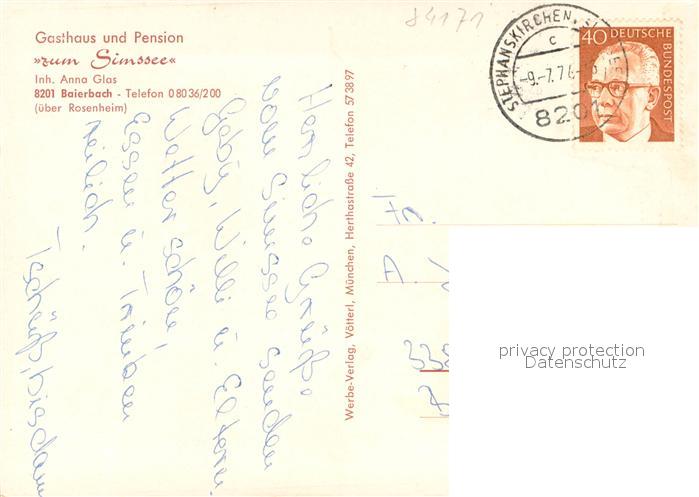 84171
Gasthaus und Pension
»zum Simssee«
Inh. Anna Glas
8201 Baierbach - Telefon 08036/200
(über Rosenheim)
STEPHANSKIRCHEN, SI
c
-9.-7.7
8201
40 DEUTSCHE
BUNDESPOST
Herzliche Grüße
vom Simssee senden
Geby, Willi u. Eltern.
Wetter schön,
Essen u. Trinken
reilich.
Tschüß, bis dann
Werbe-Verlag, Vötterl, München, Herthastraße 42, Telefon 573897
Fr.
A.
33
privacy protection
Datenschutz